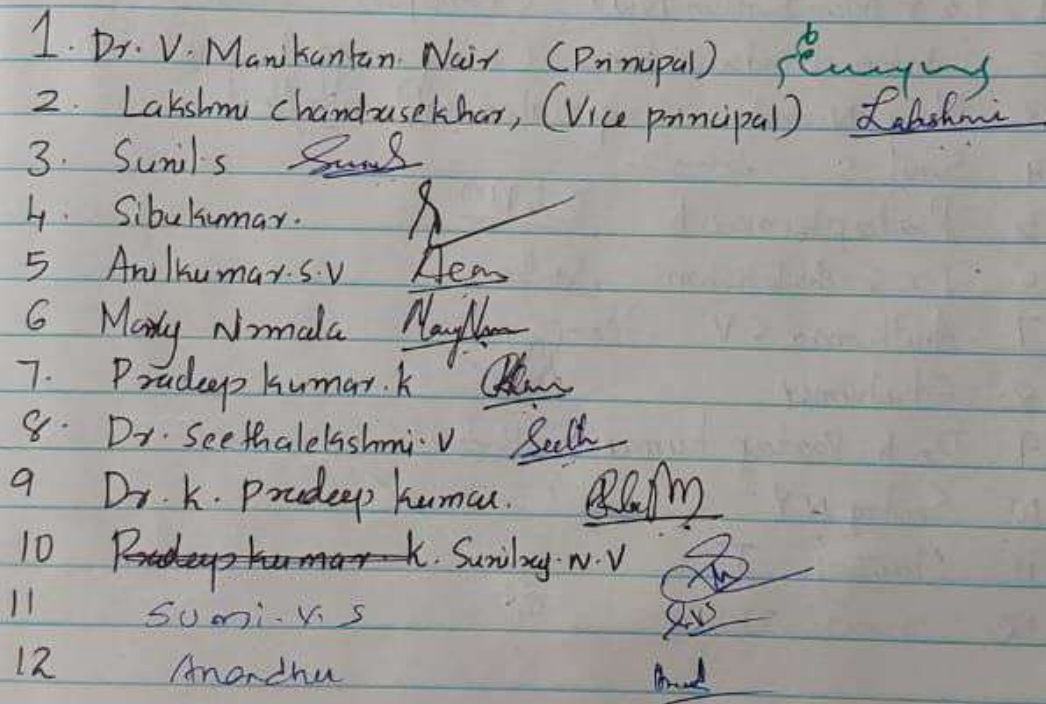 1. Dr. V. Manikantan Nair (Principal)
2. Lakshmi Chandrasekhar, (Vice principal) Lakshmi
3. Sunil.s
4. Sibukumar.
5 Anilkumar.s.v
6 Mary Nirmala
7. Pradeep kumar.k
8. Dr. Seethalekshmi.V Seeth
9 Dr. k. Pradeep kumar.
10 Pradeep kumar k. Sunilraj.N.V
11 Sumi.V.S
12 Anandhu